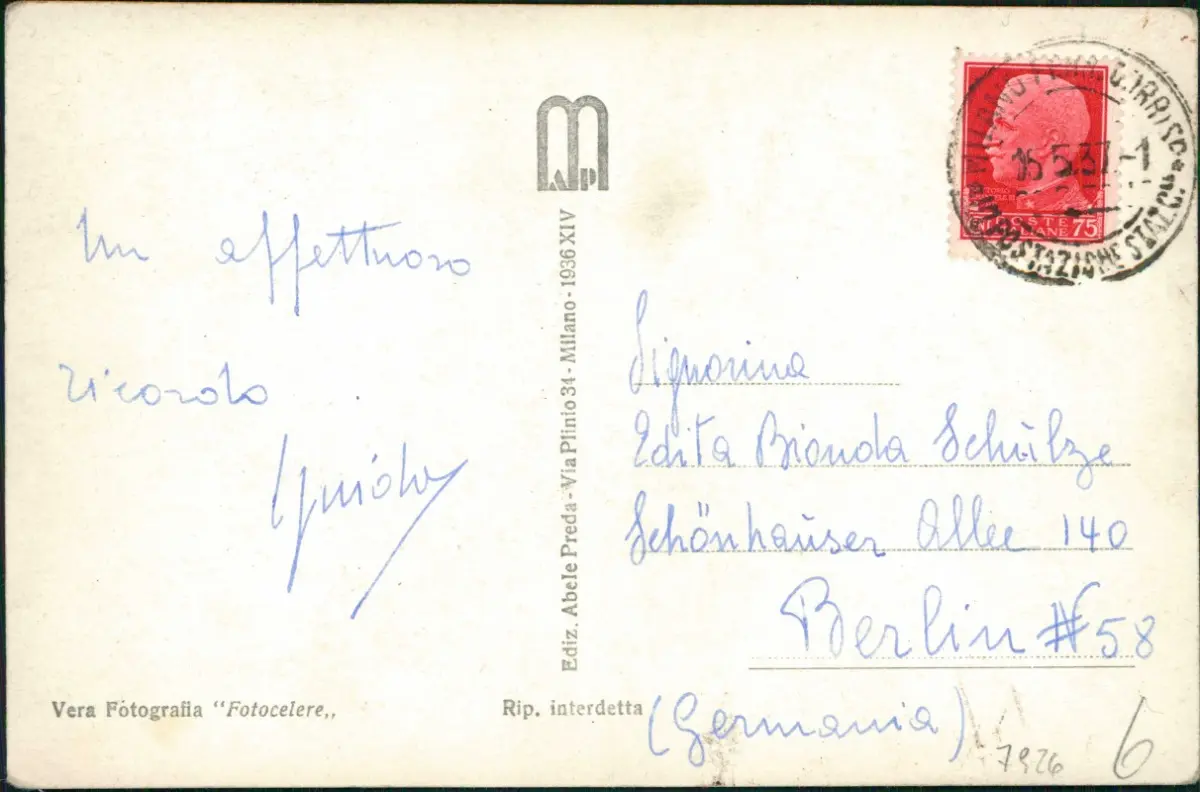 Un affettuoso
ricordo
Guido
Vera Fotografia "Fotocelere„
Ediz. Abele Preda - Via Plinio 34 - Milano - 1936 XIV
Rip. interdetta
POSTE
75
16 5.37.-1
MILANO FERR. CORRISP.
Signorina
Edita Bionda Schülze
Schönhäuser Allee 140
Berlin N 58
(Germania)
7926
6